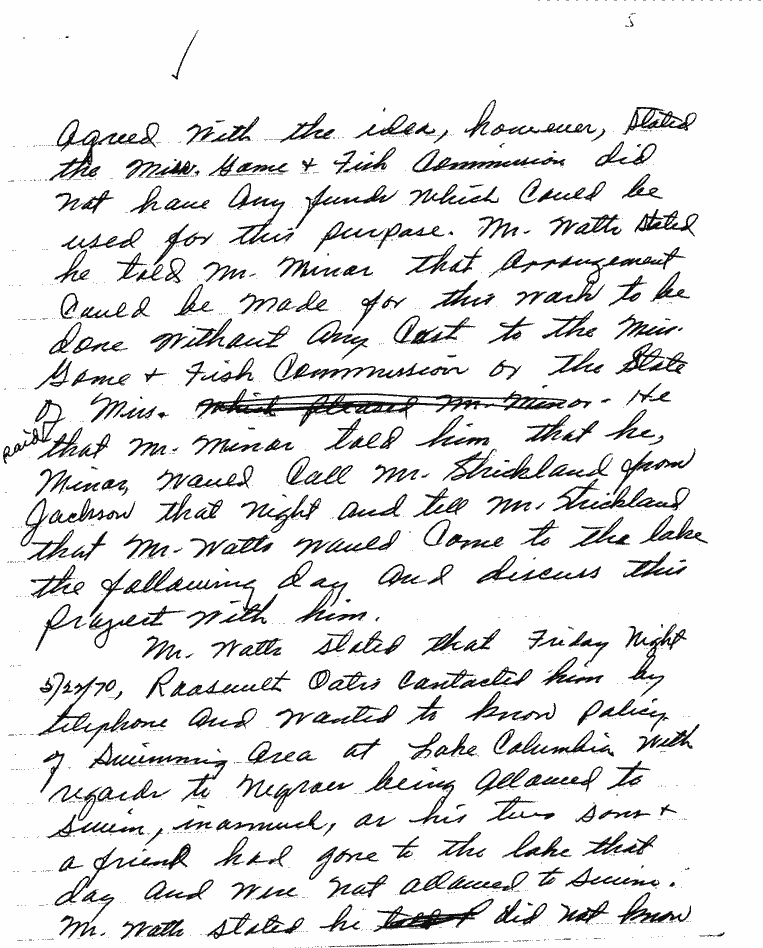 5
Agreed with the idea, however, stated
the Miss. Game + Fish Commission did
not have any funds which could be
used for this purpose. Mr. Watts stated
he told Mr. Minor that arrangement
could be made for this work to be
done without any cost to the Miss.
Game + Fish Commission or the State
of Miss. which pleased Mr. Minor. He
said that Mr. Minor told him that he,
Minor, would call Mr. Strickland from
Jackson that night and tell Mr. Strickland
that Mr. Watts would come to the lake
the following day and discuss this
project with him.
Mr. Watts stated that Friday Night
Roosevelt Oatis contacted him by
telephone and wanted to know policy
of swimming area at Lake Columbia with
regards to Negroes being allowed to
swim, inasmuch, as his two sons +
a friend had gone to the lake that
day and were not allowed to swim.
Mr. Watts stated he did not know